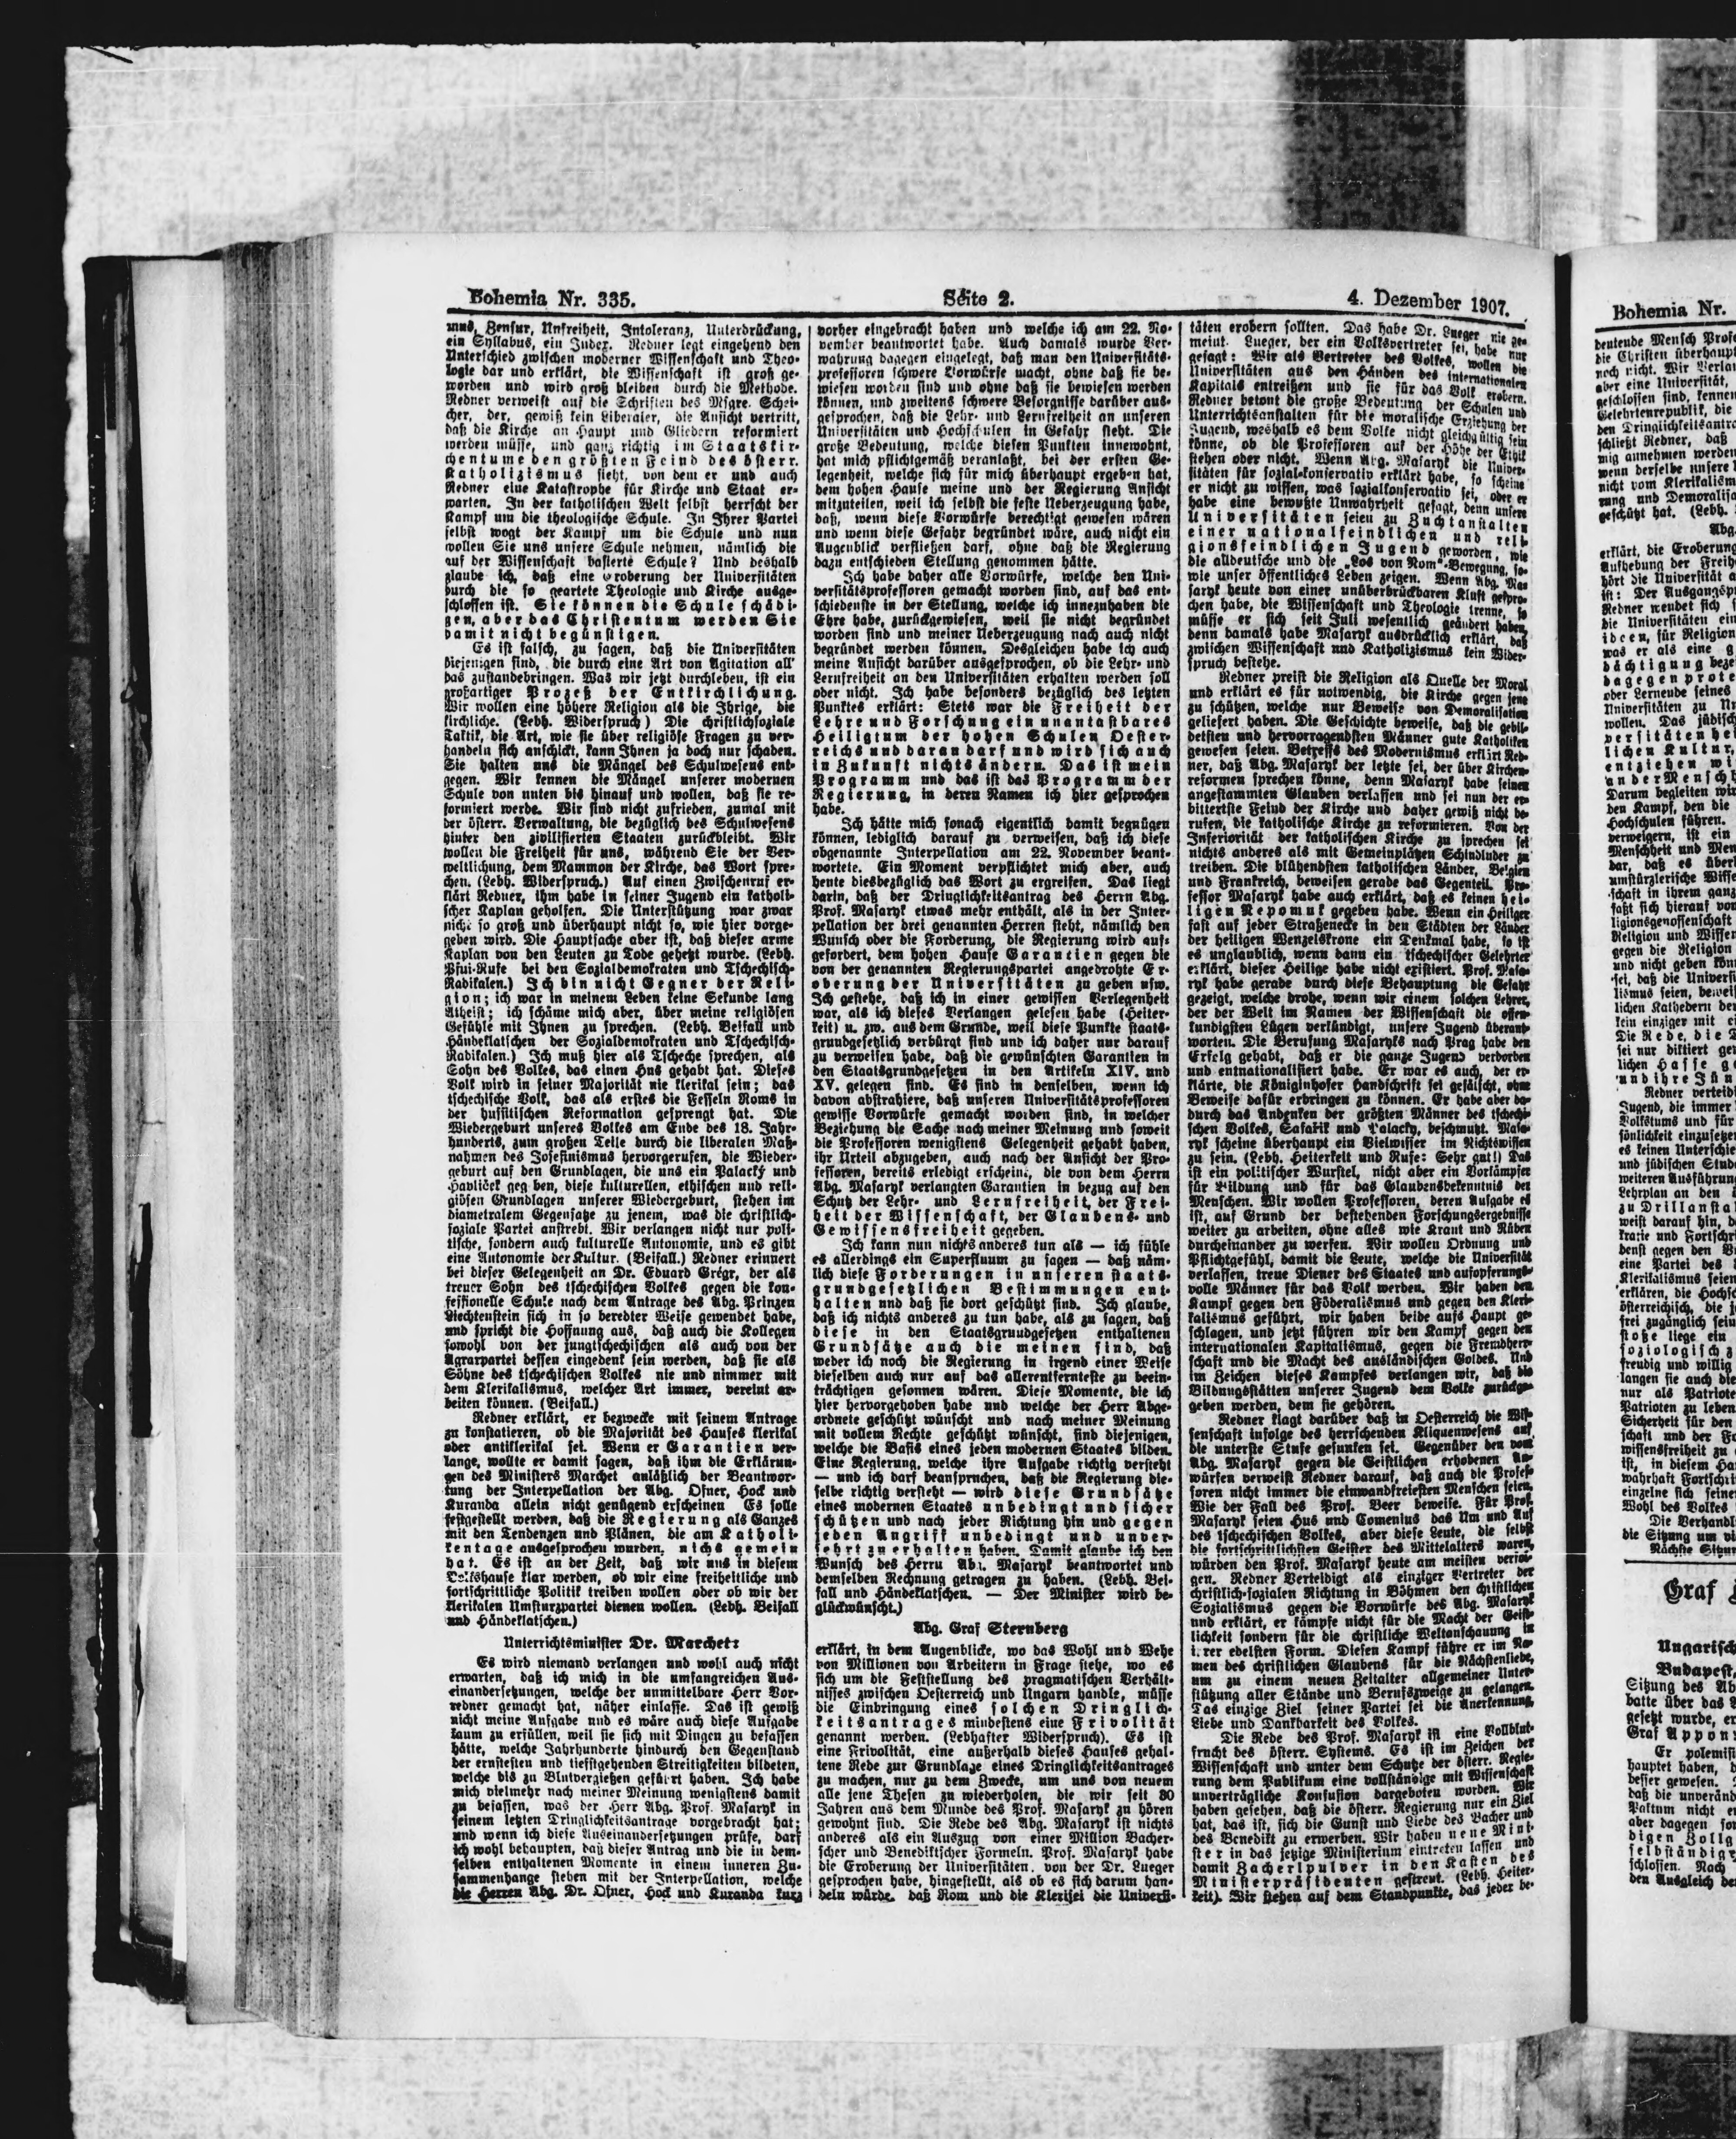 Bohemia Nr. 335.
Seite 2.
4. Dezember 1907.
mus, Zensur, Unfreiheit, Intoleranz, Unterdrückung,
ein Syllabus, ein Index. Redner legt eingehend den
Unterschied zwischen moderner Wissenschaft und Theo-
logie dar und erklärt, die Wissenschaft ist groß ge-
worden und wird groß bleiben durch die Methode.
Redner verweist auf die Schriften des Msgre. Schei-
cher, der, gewiß kein Liberaler, die Ansicht vertritt,
daß die Kirche an Haupt und Gliedern reformiert
werden müsse, und ganz richtig im Staatskir-
chentume den größten Feind des österr.
Katholizismus sieht, von dem er und auch
Redner eine Katastrophe für Kirche und Staat er-
warten. In der katholischen Welt selbst herrscht der
Kampf um die theologische Schule. In Ihrer Partei
selbst wogt der Kampf um die Schule und nun
wollen Sie uns unsere Schule nehmen, nämlich die
auf der Wissenschaft basierte Schule? Und deshalb
glaube ich, daß eine Eroberung der Universitäten
durch die so geartete Theologie und Kirche ausge-
schlossen ist. Sie können die Schule schädi-
gen, aber das Christentum werden Sie
damit nicht begünstigen.
Es ist falsch, zu sagen, daß die Universitäten
diejenigen sind, die durch eine Art von Agitation all'
das zustandebringen. Was wir jetzt durchleben, ist ein
großartiger Prozeß der Entkirchlichung.
Wir wollen eine höhere Religion als die Ihrige, die
kirchliche. (Lebh. Widerspruch) Die christlichsoziale
Taktik, die Art, wie sie über religiöse Fragen zu ver-
handeln sich anschickt, kann Ihnen ja doch nur schaden.
Sie halten uns die Mängel des Schulwesens ent-
gegen. Wir kennen die Mängel unserer modernen
Schule von unten bis hinauf und wollen, daß sie re-
formiert werde. Wir sind nicht zufrieden, zumal mit
der österr. Verwaltung, die bezüglich des Schulwesens
hinter den zivilisierten Staaten zurückbleibt. Wir
wollen die Freiheit für uns, während Sie der Ver-
weltlichung, dem Mammon der Kirche, das Wort spre-
chen. (Lebh. Widerspruch.) Auf einen Zwischenruf er-
klärt Redner, ihm habe in seiner Jugend ein katholi-
scher Kaplan geholfen. Die Unterstützung war zwar
nicht so groß und überhaupt nicht so, wie hier vorge-
geben wird. Die Hauptsache aber ist, daß dieser arme
Kaplan von den Leuten zu Tode gehetzt wurde. (Lebh.
Pfui-Rufe bei den Sozialdemokraten und Tschechisch-
Radikalen.) Ich bin nicht Gegner der Reli-
gion; ich war in meinem Leben keine Sekunde lang
Atheist; ich schäme mich aber, über meine religiösen
Gefühle mit Ihnen zu sprechen. (Lebh. Beifall und
Händeklatschen der Sozialdemokraten und Tschechisch-
Radikalen.) Ich muß hier als Tscheche sprechen, als
Sohn des Volkes, das einen Hus gehabt hat. Dieses
Volk wird in seiner Majorität nie klerikal sein; das
tschechische Volk, das als erstes die Fesseln Roms in
der husitischen Reformation gesprengt hat. Die
Wiedergeburt unseres Volkes am Ende des 18. Jahr-
hunderts, zum großen Teile durch die liberalen Maß-
nahmen des Josefinismus hervorgerufen, die Wieder-
geburt auf den Grundlagen, die uns ein Palacký und
Havlíček geg ben, diese kulturellen, ethischen und reli-
giösen Grundlagen unserer Wiedergeburt, stehen im
diametralem Gegensatze zu jenem, was die christlich-
soziale Partei anstrebt. Wir verlangen nicht nur poli-
tische, sondern auch kulturelle Autonomie, und es gibt
eine Autonomie der Kultur. (Beifall.) Redner erinnert
bei dieser Gelegenheit an Dr. Eduard Grégr, der als
treuer Sohn des tschechischen Volkes gegen die kon-
fessionelle Schule nach dem Antrage des Abg. Prinzen
Liechtenstein sich in so beredter Weise gewendet habe,
und spricht die Hoffnung aus, daß auch die Kollegen
sowohl von der jungtschechischen als auch von der
Agrarpartei dessen eingedenk sein werden, daß sie als
Söhne des tschechischen Volkes nie und nimmer mit
dem Klerikalismus, welcher Art immer, vereint ar-
beiten können. (Beifall.)
Redner erklärt, er bezwecke mit seinem Antrage
zu konstatieren, ob die Majorität des Hauses klerikal
oder antiklerikal sei. Wenn er Garantien ver-
lange, wollte er damit sagen, daß ihm die Erklärun-
gen des Ministers Marchet anläßlich der Beantwor-
tung der Interpellation der Abg. Ofner, Hock und
Kuranda allein nicht genügend erscheinen Es solle
festgestellt werden, daß die Regierung als Ganzes
mit den Tendenzen und Plänen, die am Katholi-
kentage ausgesprochen wurden, nichs gemein
hat. Es ist an der Zeit, daß wir uns in diesem
Volkshause klar werden, ob wir eine freiheitliche und
fortschrittliche Politik treiben wollen oder ob wir der
klerikalen Umsturzpartei dienen wollen. (Lebh. Beifall
und Händeklatschen.)
Unterrichtsminister Dr. Marchet:
Es wird niemand verlangen und wohl auch nicht
erwarten, daß ich mich in die umfangreichen Aus-
einandersetzungen, welche der unmittelbare Herr Vor-
redner gemacht hat, näher einlasse. Das ist gewiß
nicht meine Aufgabe und es wäre auch diese Aufgabe
kaum zu erfüllen, weil sie sich mit Dingen zu befassen
hätte, welche Jahrhunderte hindurch den Gegenstand
der ernstesten und tiefstgehenden Streitigkeiten bildeten,
welche bis zu Blutvergießen geführt haben. Ich habe
mich vielmehr nach meiner Meinung wenigstens damit
zu befassen, was der Herr Abg. Prof. Masaryk in
seinem letzten Dringlichkeitsantrage vorgebracht hat;
und wenn ich diese Auseinandersetzungen prüfe, darf
ich wohl behaupten, daß dieser Antrag und die in dem-
selben enthaltenen Momente in einem inneren Zu-
sammenhange stehen mit der Interpellation, welche
die Herren Abg. Dr. Ofner, Hock und Kuranda kurz
vorher eingebracht haben und welche ich am 22. No-
vember beantwortet habe. Auch damals wurde Ver-
wahrung dagegen eingelegt, daß man den Universitäts-
professoren schwere Vorwürfe macht, ohne daß sie be-
wiesen worden sind und ohne daß sie bewiesen werden
können, und zweitens schwere Besorgnisse darüber aus-
gesprochen, daß die Lehr- und Lernfreiheit an unseren
Universitäten und Hochschulen in Gefahr steht. Die
große Bedeutung, welche diesen Punkten innewohnt,
hat mich pflichtgemäß veranlaßt, bei der ersten Ge-
legenheit, welche sich für mich überhaupt ergeben hat,
dem hohen Hause meine und der Regierung Ansicht
mitzuteilen, weil ich selbst die feste Ueberzeugung habe,
daß, wenn diese Vorwürfe berechtigt gewesen wären
und wenn diese Gefahr begründet wäre, auch nicht ein
Augenblick verfließen darf, ohne daß die Regierung
dazu entschieden Stellung genommen hätte.
Ich habe daher alle Vorwürfe, welche den Uni-
versitätsprofessoren gemacht worden sind, auf das ent-
schiedenste in der Stellung, welche ich innezuhaben die
Ehre habe, zurückgewiesen, weil sie nicht begründet
worden sind und meiner Ueberzeugung nach auch nicht
begründet werden können. Desgleichen habe ich auch
meine Ansicht darüber ausgesprochen, ob die Lehr- und
Lernfreiheit an den Universitäten erhalten werden soll
oder nicht. Ich habe besonders bezüglich des letzten
Punktes erklärt: Stets war die Freiheit der
Lehre und Forschung ein unantastbares
Heiligtum der hohen Schulen Oester-
reichs und daran darf und wird sich auch
in Zukunft nichts ändern. Das ist mein
Programm und das ist das Programm der
Regierung, in deren Namen ich hier gesprochen
habe.
Ich hätte mich sonach eigentlich damit begnügen
können, lediglich darauf zu verweisen, daß ich diese
obgenannte Interpellation am 22. November beant-
wortete. Ein Moment verpflichtet mich aber, auch
heute diesbezüglich das Wort zu ergreifen. Das liegt
darin, daß der Dringlichkeitsantrag des Herrn Abg.
Prof. Masaryk etwas mehr enthält, als in der Inter-
pellation der drei genannten Herren steht, nämlich den
Wunsch oder die Forderung, die Regierung wird auf-
gefordert, dem hohen Hause Garantien gegen die
von der genannten Regierungspartei angedrohte Er-
oberung der Universitäten zu geben usw.
Ich gestehe, daß ich in einer gewissen Verlegenheit
war, als ich dieses Verlangen gelesen habe (Heiter-
keit) u. zw. aus dem Grunde, weil diese Punkte staats-
grundgesetzlich verbürgt sind und ich daher nur darauf
zu verweisen habe, daß die gewünschten Garantien in
den Staatsgrundgesetzen in den Artikeln XIV. und
XV. gelegen sind. Es sind in denselben, wenn ich
davon abstrahiere, daß unseren Universitätsprofessoren
gewisse Vorwürfe gemacht worden sind, in welcher
Beziehung die Sache nach meiner Meinung und soweit
die Professoren wenigstens Gelegenheit gehabt haben,
ihr Urteil abzugeben, auch nach der Ansicht der Pro-
fessoren, bereits erledigt erscheint, die von dem Herrn
Abg. Masaryk verlangten Garantien in bezug auf den
Schutz der Lehr- und Lernfreiheit, der Frei-
heit der Wissenschaft, der Glaubens- und
Gewissensfreiheit gegeben.
Ich kann nun nichts anderes tun als — ich fühle
es allerdings ein Superfluum zu sagen — daß näm-
lich diese Forderungen in unseren staats-
grundgesetzlichen Bestimmungen ent-
halten und daß sie dort geschützt sind. Ich glaube,
daß ich nichts anderes zu tun habe, als zu sagen, daß
diese in den Staatsgrundgesetzen enthaltenen
Grundsätze auch die meinen sind, daß
weder ich noch die Regierung in irgend einer Weise
dieselben auch nur auf das allerentfernteste zu beein-
trächtigen gesonnen wären. Diese Momente, die ich
hier hervorgehoben habe und welche der Herr Abge-
ordnete geschützt wünscht und nach meiner Meinung
mit vollem Rechte geschützt wünscht, sind diejenigen,
welche die Basis eines jeden modernen Staates bilden.
Eine Regierung, welche ihre Aufgabe richtig versteht
— und ich darf beanspruchen, daß die Regierung die-
selbe richtig versteht — wird diese Grundsätze
eines modernen Staates unbedingt und sicher
schützen und nach jeder Richtung hin und gegen
jeden Angriff unbedingt und unver-
sehrt zu erhalten haben. Damit glaube ich den
Wunsch des Herrn Abg. Masaryk beantwortet und
demselben Rechnung getragen zu haben. (Lebh. Bei-
fall und Händeklatschen. — Der Minister wird be-
glückwünscht.)
Abg. Graf Sternberg
erklärt, in dem Augenblicke, wo das Wohl und Wehe
von Millionen von Arbeitern in Frage stehe, wo es
sich um die Feststellung des pragmatischen Verhält-
nisses zwischen Oesterreich und Ungarn handle, müsse
die Einbringung eines solchen Dringlich-
keitsantrages mindestens eine Frivolität
genannt werden. (Lebhafter Widerspruch). Es ist
eine Frivolität, eine außerhalb dieses Hauses gehal-
tene Rede zur Grundlage eines Dringlichkeitsantrages
zu machen, nur zu dem Zwecke, um uns von neuem
alle jene Thesen zu wiederholen, die wir seit 30
Jahren aus dem Munde des Prof. Masaryk zu hören
gewohnt sind. Die Rede des Abg. Masaryk ist nichts
anderes als ein Auszug von einer Million Bacher-
scher und Benediktscher Formeln. Prof. Masaryk habe
die Eroberung der Universitäten, von der Dr. Lueger
gesprochen habe, hingestellt, als ob es sich darum han-
deln würde, daß Rom und die Klerisei die Universi-
täten erobern sollten. Das habe Dr. Lueger nie ge-
meint. Lueger, der ein Volksvertreter sei, habe nur
gesagt: Wir als Vertreter des Volkes, wollen die
Universitäten aus den Händen des internationalen
Kapitals entreißen und sie für das Volk erobern.
Redner betont die große Bedeutung der Schulen und
Unterrichtsanstalten für die moralische Erziehung der
Jugend, weshalb es dem Volke nicht gleichgültig sein
könne, ob die Professoren auf der Höhe der Ethik
stehen oder nicht. Wenn Abg. Masaryk die Univer-
sitäten für sozial-konservativ erklärt habe, so scheine
er nicht zu wissen, was sozialkonservativ sei, oder er
habe eine bewußte Unwahrheit gesagt, denn unsere
Universitäten seien zu Zuchtanstalten
einer nationalfeindlichen und reli-
gionsfeindlichen Jugend geworden, wie
die alldeutsche und die „Los von Rom"-Bewegung, so-
wie unser öffentliches Leben zeigen. Wenn Abg. Ma-
saryk heute von einer unüberbrückbaren Kluft gespro-
chen habe, die Wissenschaft und Theologie trenne, so
müsse er sich seit Juli wesentlich geändert haben,
denn damals habe Masaryk ausdrücklich erklärt, daß
zwischen Wissenschaft und Katholizismus kein Wider-
spruch bestehe.
Redner preist die Religion als Quelle der Moral
und erklärt es für notwendig, die Kirche gegen jene
zu schützen, welche nur Beweise von Demoralisation
geliefert haben. Die Geschichte beweise, daß die gebil-
detsten und hervorragendsten Männer gute Katholiken
gewesen seien. Betreffs des Modernismus erklärt Red-
ner, daß Abg. Masaryk der letzte sei, der über Kirchen-
reformen sprechen könne, denn Masaryk habe seinen
angestammten Glauben verlassen und sei nun der er-
bittertste Feind der Kirche und daher gewiß nicht be-
rufen, die katholische Kirche zu reformieren. Von der
Inferiorität der katholischen Kirche zu sprechen sei
nichts anderes als mit Gemeinplätzen Schindluder zu
treiben. Die blühendsten katholischen Länder, Belgien
und Frankreich, beweisen gerade das Gegenteil. Pro-
fessor Masaryk habe auch erklärt, daß es keinen hei-
ligen Nepomuk gegeben habe. Wenn ein Heiliger
fast auf jeder Straßenecke in den Städten der Länder
der heiligen Wenzelskrone ein Denkmal habe, so ist
es unglaublich, wenn dann ein tschechischer Gelehrter
erklärt, dieser Heilige habe nicht existiert. Prof. Masa-
ryk habe gerade durch diese Behauptung die Gefahr
gezeigt, welche drohe, wenn wir einem solchen Lehrer,
der der Welt im Namen der Wissenschaft die offen-
kundigsten Lügen verkündigt, unsere Jugend überant-
worten. Die Berufung Masaryks nach Prag habe den
Erfolg gehabt, daß er die ganze Jugend verdorben
und entnationalisiert habe. Er war es auch, der er-
klärte, die Königinhofer Handschrift sei gefälscht, ohne
Beweise dafür erbringen zu können. Er habe aber da-
durch das Andenken der größten Männer des tschechi-
schen Volkes, Šafařík und Palacký, beschmutzt. Masa-
ryk scheine überhaupt ein Vielwisser im Nichtswissen
zu sein. (Lebh. Heiterkeit und Rufe: Sehr gut!) Das
ist ein politischer Wurstel, nicht aber ein Vorkämpfer
für Bildung und für das Glaubensbekenntnis der
Menschen. Wir wollen Professoren, deren Aufgabe es
ist, auf Grund der bestehenden Forschungsergebnisse
weiter zu arbeiten, ohne alles wie Kraut und Rüben
durcheinander zu werfen. Wir wollen Ordnung und
Pflichtgefühl, damit die Leute, welche die Universität
verlassen, treue Diener des Staates und aufopferungs-
volle Männer für das Volk werden. Wir haben den
Kampf gegen den Föderalismus und gegen den Kleri-
kalismus geführt, wir haben beide aufs Haupt ge-
schlagen, und jetzt führen wir den Kampf gegen den
internationalen Kapitalismus, gegen die Fremdherr-
schaft und die Macht des ausländischen Goldes. Und
im Zeichen dieses Kampfes verlangen wir, daß die
Bildungsstätten unserer Jugend dem Volke zurückge-
geben werden, dem sie gehören.
Redner klagt darüber daß in Oesterreich die Wis-
senschaft infolge des herrschenden Kliquenwesens auf
die unterste Stufe gesunken sei. Gegenüber den vom
Abg. Masaryk gegen die Geistlichen erhobenen An-
würfen verweist Redner darauf, daß auch die Profes-
soren nicht immer die einwandfreiesten Menschen seien.
Wie der Fall des Prof. Beer beweise. Für Prof.
Masaryk seien Hus und Comenius das Um und Auf
des tschechischen Volkes, aber diese Leute, die selbst
die fortschrittlichsten Geister des Mittelalters waren,
würden den Prof. Masaryk heute am meisten verfol-
gen. Redner Verteidigt als einziger Vertreter der
christlich-sozialen Richtung in Böhmen den christlichen
Sozialismus gegen die Vorwürfe des Abg. Masaryk
und erklärt, er kämpfe nicht für die Macht der Geist-
lichkeit sondern für die christliche Weltanschauung in
ihrer edelsten Form. Diesen Kampf führe er im Na-
men des christlichen Glaubens für die Nächstenliebe,
um zu einem neuen Zeitalter allgemeiner Unter-
stützung aller Stände und Berufszweige zu gelangen.
Das einzige Ziel seiner Partei sei die Anerkennung,
Liebe und Dankbarkeit des Volkes.
Die Rede des Prof. Masaryk ist eine Vollblut-
frucht des österr. Systems. Es ist im Zeichen der
Wissenschaft und unter dem Schutze der österr. Regie-
rung dem Publikum eine vollständige mit Wissenschaft
unverträgliche Konfusion dargeboten worden. Wir
haben gesehen, daß die österr. Regierung nur ein Ziel
hat, das ist, sich die Gunst und Liebe des Bacher und
des Benedikt zu erwerben. Wir haben neue Mini-
ster in das jetzige Ministerium eintreten lassen und
damit Zacherlpulver in den Kasten des
Ministerpräsidenten gestreut. (Lebh. Heiter-
keit). Wir stehen auf dem Standpunkte, das jeder be-
Bohemia Nr.